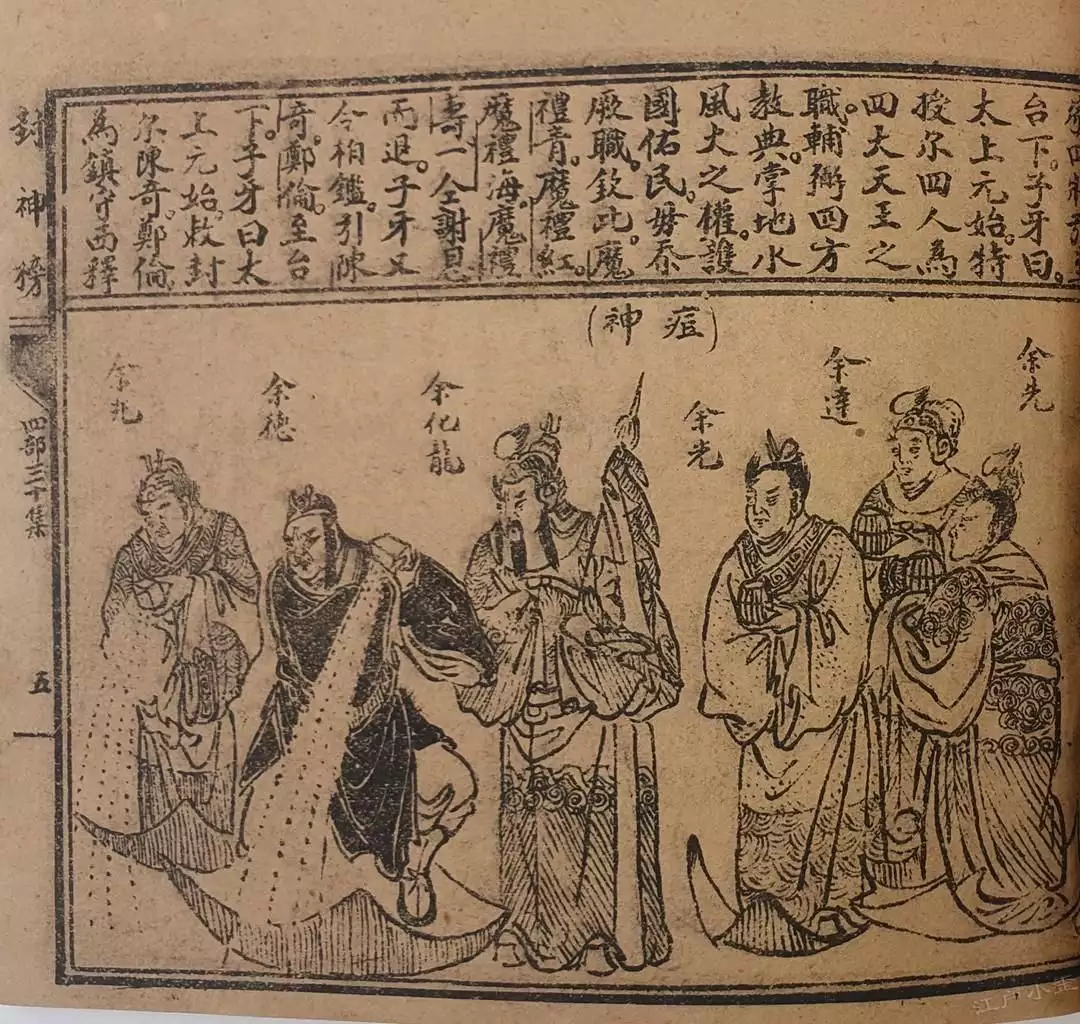 四將
台下。子牙曰。
太上元始。特
授尔四人為
四大天王之
職。輔弼四方
教典。掌地水
風火之權。護
國佑民。毋忝
厥職。欽此。魔
禮青。魔禮紅。
魔禮海。魔禮
壽一仝謝恩
而退。子牙又
令柏鑑引陳
奇。鄭倫。至台
下。子牙曰太
上元始。敕封
尔陳奇。鄭倫。
為鎮守西釋
(痘神)
余先
余達
余光
余化龍
余德
余兆
封神榜
四部三十集
五